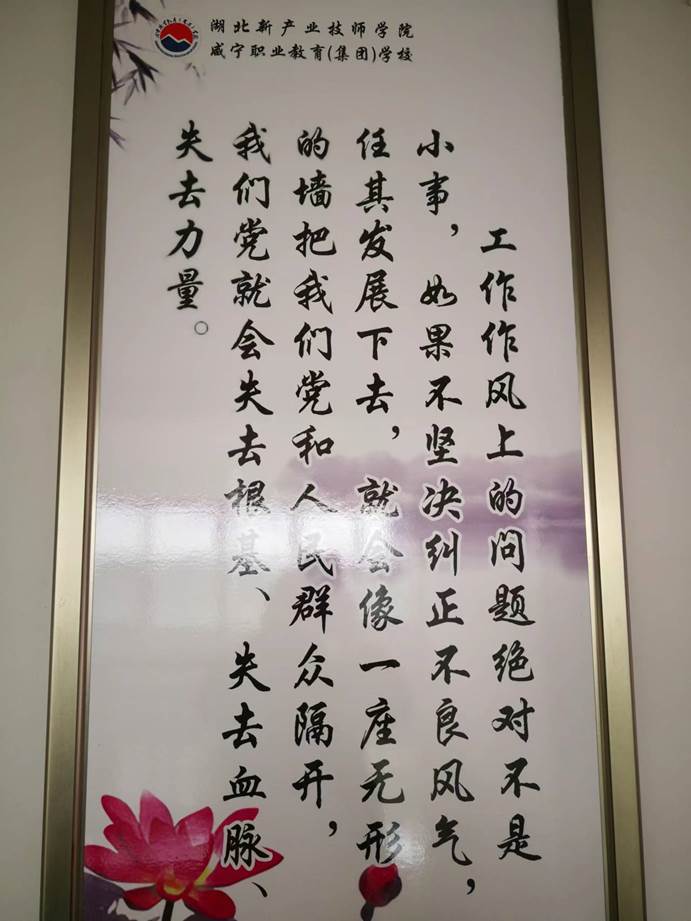 湖北新产业技师学院
咸宁职业教育(集团)学校
工作作风上的问题绝对不是
小事，如果不坚决纠正不良风气，
任其发展下去，就会像一座无形
的墙把我们党和人民群众隔开，
我们党就会失去根基、失去血脉、
失去力量。